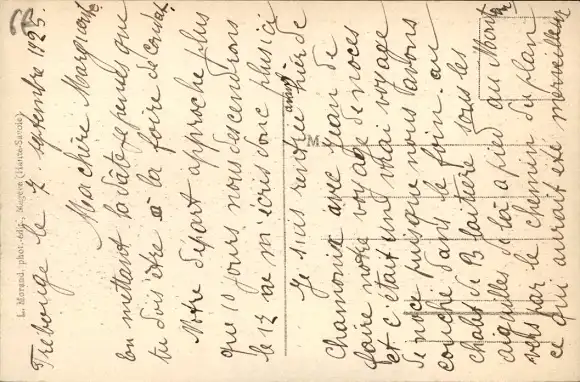 Trebouge le 7 septembre 1925.
Ma chère Marguerite
En mettant la date je pense que
tu dois être à la foire de
Notre départ approche plus
que 10 jours nous descendrons
le 12 ne m'écris donc plus ici
Je suis rentrée avant hier de
Chamonix avec Jean de
faire notre voyage de noces
et c'était un vrai voyage
de noce puisque nous avons
couché dans le foin. au
chalet de Blaitière sous les
aiguilles de là à pied au Mont
vers par le chemin du plan
ce qui aurait été merveilleux
M
L. Morand, phot.-édit., Megève (Haute-Savoie)